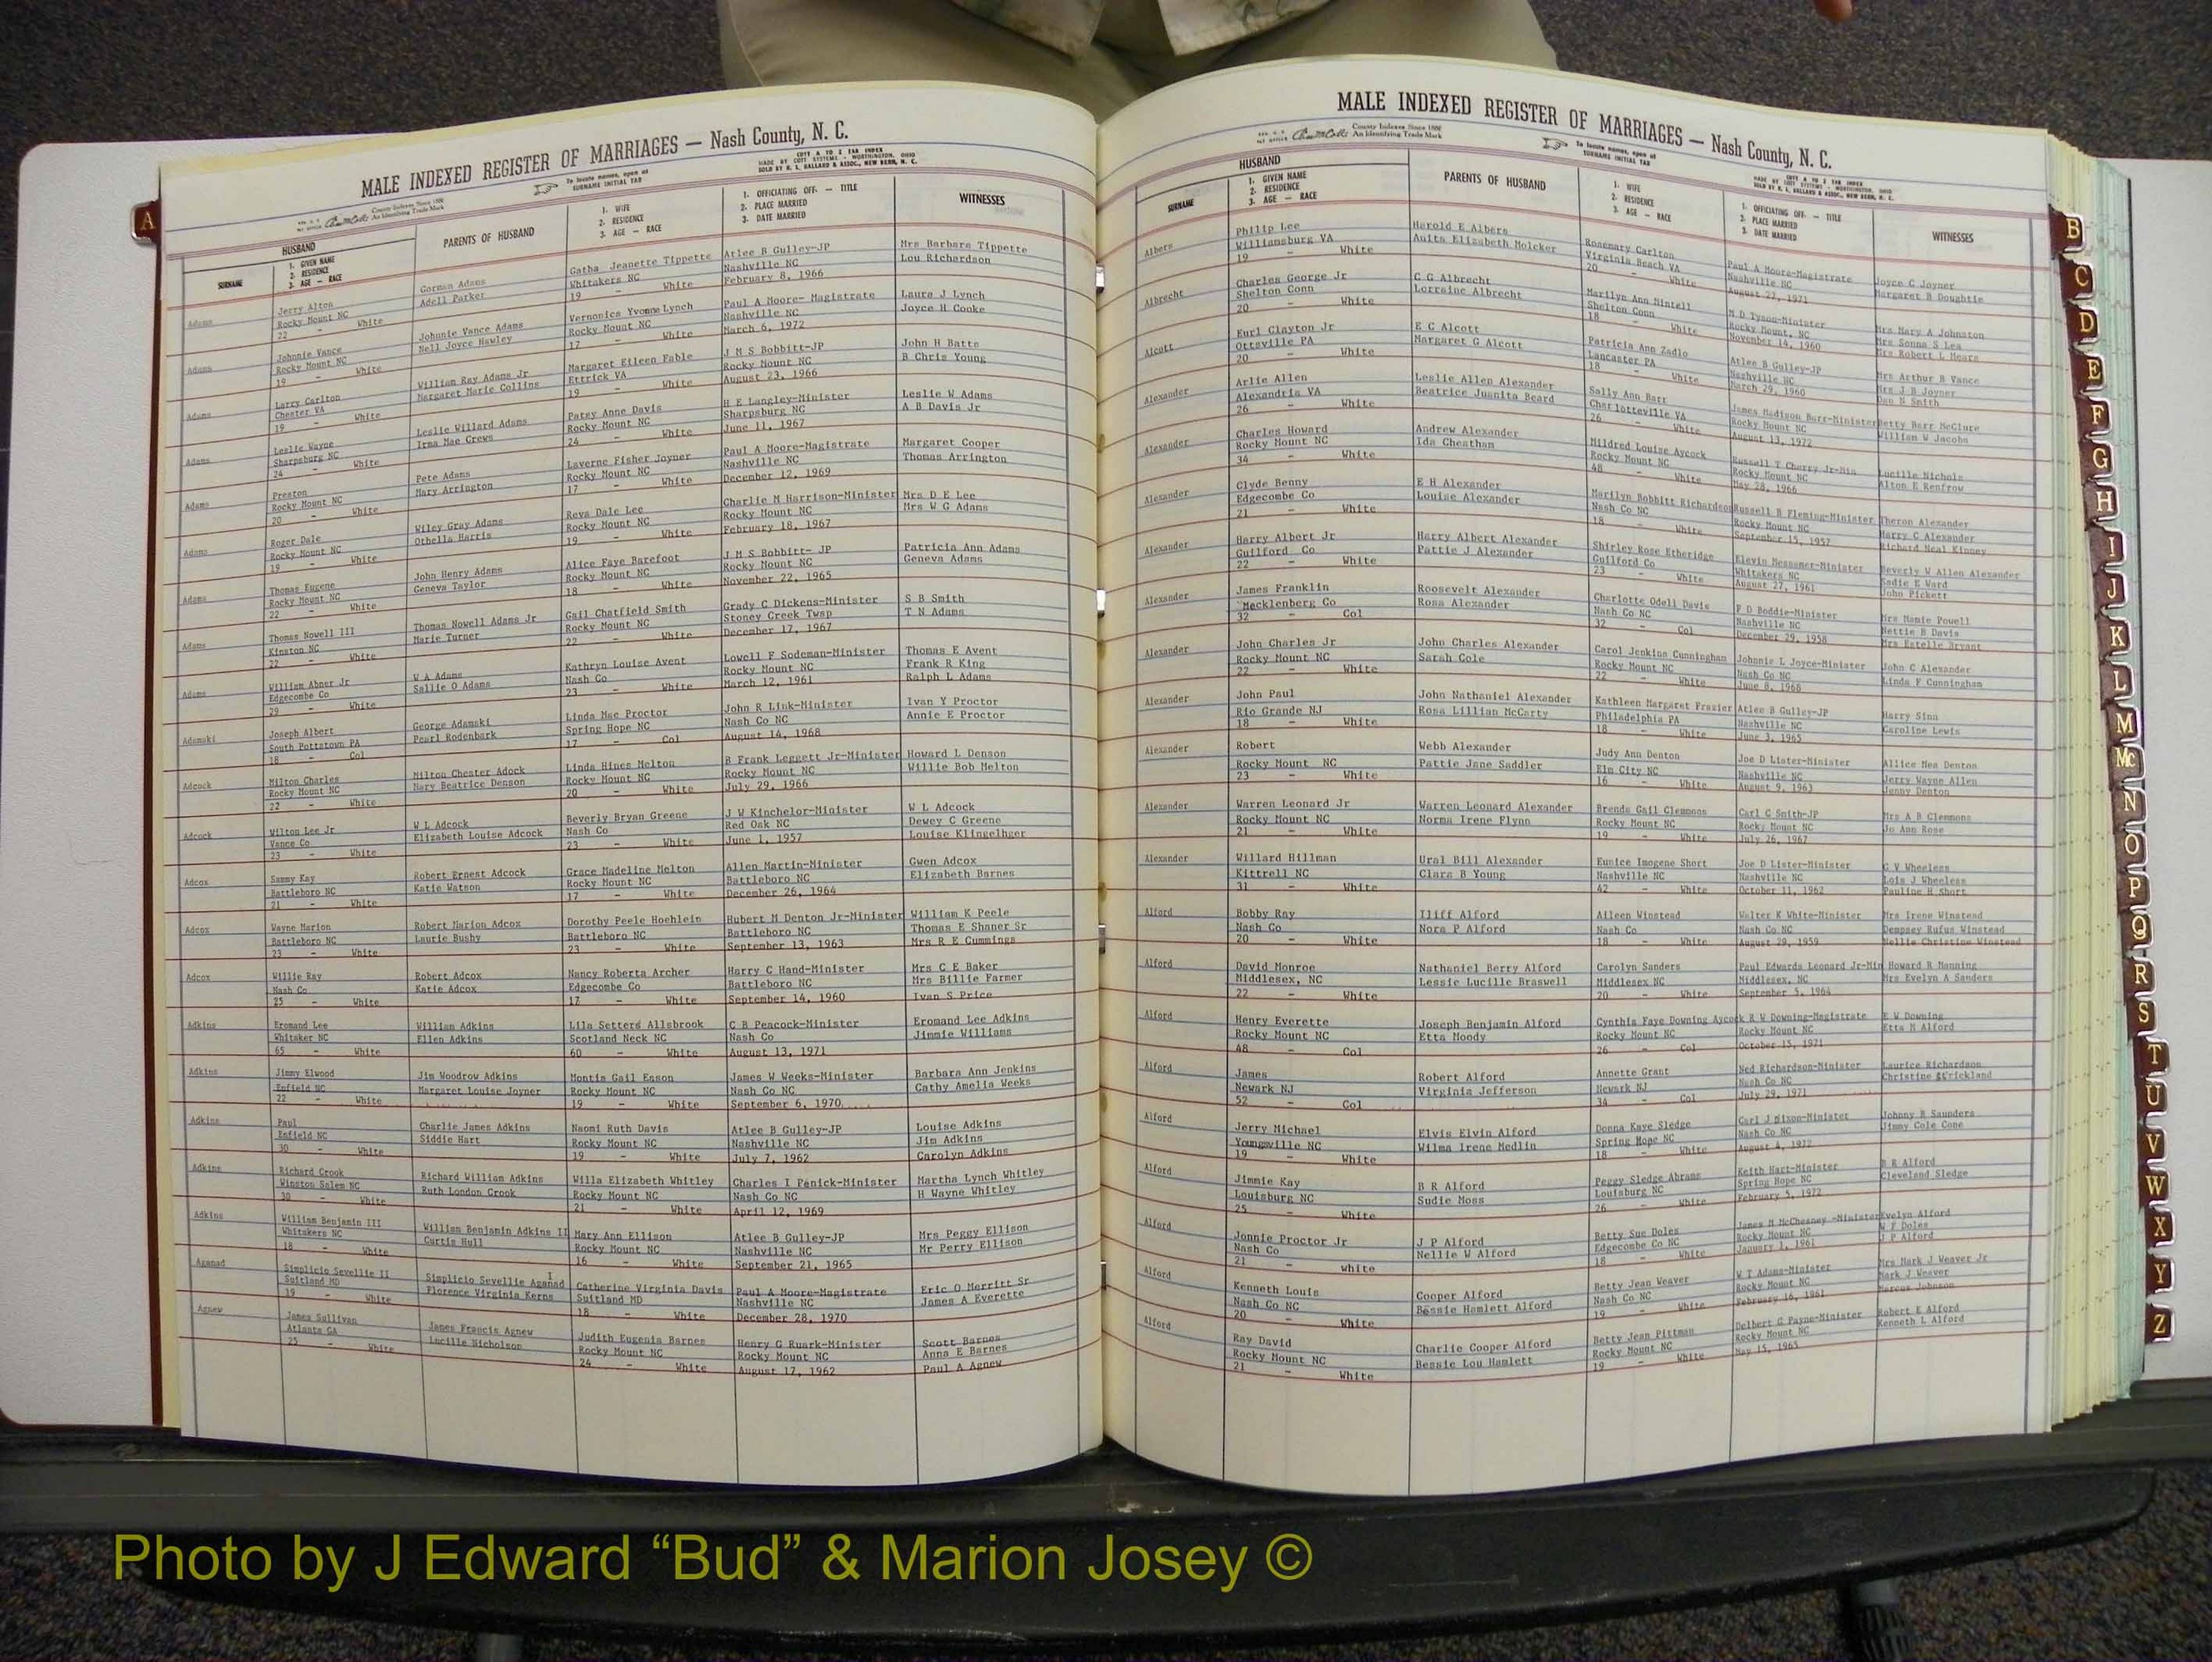 MALE INDEXED REGISTER OF MARRIAGES — Nash County, N. C.
County Indexes Since 1888
An Identifying Trade Mark
To locate names, open at
SURNAME INITIAL TAB
COTT A TO Z TAB INDEX
MADE BY COTT SYSTEMS - WORTHINGTON, OHIO
SOLD BY R. L. BALLARD & ASSOC., NEW BERN, N. C.
HUSBAND
SURNAME
1. GIVEN NAME
2. RESIDENCE
3. AGE — RACE
PARENTS OF HUSBAND
1. WIFE
2. RESIDENCE
3. AGE — RACE
1. OFFICIATING OFF. — TITLE
2. PLACE MARRIED
3. DATE MARRIED
WITNESSES
Adams Jerry Alton Gorman Adams Gatha Jeanette Tippette Atlee B Gulley-JP Mrs Barbara Tippette
Rocky Mount NC Adell Parker Whitakers NC Nashville NC Lou Richardson
22 - White 19 - White February 8, 1966
Adams Johnnie Vance Johnnie Vance Adams Vernonica Yvonne Lynch Paul A Moore- Magistrate Laura J Lynch
Rocky Mount NC Nell Joyce Hawley Rocky Mount NC Nashville NC Joyce H Cooke
19 - White 17 - White March 6, 1972
Adams Larry Carlton William Ray Adams Jr Margaret Eileen Fable J M S Bobbitt-JP John H Batts
Chester VA Margaret Marie Collins Ettrick VA Rocky Mount NC B Chris Young
19 - White 19 - White August 23, 1966
Adams Leslie Wayne Leslie Willard Adams Patsy Anne Davis H E Langley-Minister Leslie W Adams
Sharpsburg NC Irma Mae Crews Rocky Mount NC Sharpsburg NC A B Davis Jr
24 - White 24 - White June 11, 1967
Adams Preston Pete Adams Laverne Fisher Joyner Paul A Moore-Magistrate Margaret Cooper
Rocky Mount NC Mary Arrington Rocky Mount NC Nashville NC Thomas Arrington
20 - White 17 - White December 12, 1969
Adams Roger Dale Wiley Gray Adams Reva Dale Lee Charlie M Harrison-Minister Mrs D E Lee
Rocky Mount NC Othella Harris Rocky Mount NC Rocky Mount NC Mrs W G Adams
19 - White 19 - White February 18, 1967
Adams Thomas Eugene John Henry Adams Alice Faye Barefoot J M S Bobbitt- JP Patricia Ann Adams
Rocky Mount NC Geneva Taylor Rocky Mount NC Rocky Mount NC Geneva Adams
22 - White 18 - White November 22, 1965
Adams Thomas Nowell III Thomas Nowell Adams Jr Gail Chatfield Smith Grady C Dickens-Minister S B Smith
Kinston NC Marie Turner Rocky Mount NC Stoney Creek Twsp T N Adams
22 - White 22 - White December 17, 1967
Adams William Abner Jr W A Adams Kathryn Louise Avent Lowell F Sodeman-Minister Thomas E Avent
Edgecombe Co Sallie O Adams Nash Co Rocky Mount NC Frank R King
29 - White 23 - White March 12, 1961 Ralph L Adams
Adamski Joseph Albert George Adamski Linda Mae Proctor John R Link-Minister Ivan Y Proctor
South Pottstown PA Pearl Rodenbark Spring Hope NC Nash Co NC Annie E Proctor
18 - Col 17 - Col August 14, 1968
Adcock Milton Charles Milton Chester Adock Linda Hines Melton B Frank Leggett Jr-Minister Howard L Denson
Rocky Mount NC Mary Beatrice Denson Rocky Mount NC Rocky Mount NC Willie Bob Melton
22 - White 20 - White July 29, 1966
Adcock Wilton Lee Jr W L Adcock Beverly Bryan Greene J W Kinchelor-Minister W L Adcock
Vance Co Elizabeth Louise Adcock Nash Co Red Oak NC Dewey C Greene
23 - White 23 - White June 1, 1957 Louise Klingelhger
Adcox Sammy Kay Robert Ernest Adcock Grace Madeline Melton Allen Martin-Minister Gwen Adcox
Battleboro NC Katie Watson Rocky Mount NC Battleboro NC Elizabeth Barnes
21 - White 17 - White December 26, 1964
Adcox Wayne Marion Robert Marion Adcox Dorothy Peele Hoehlein Hubert M Denton Jr-Minister William K Peele
Battleboro NC Laurie Busby Battleboro NC Battleboro NC Thomas E Shaner Sr
23 - White 23 - White September 13, 1963 Mrs R E Cummings
Adcox Willie Ray Robert Adcox Nancy Roberta Archer Harry C Hand-Minister Mrs C E Baker
Nash Co Katie Adcox Edgecombe Co Battleboro NC Mrs Billie Farmer
25 - White 17 - White September 14, 1960 Ivan S Price
Adkins Eromand Lee William Adkins Lila Setters Allsbrook C B Peacock-Minister Eromand Lee Adkins
Whitaker NC Ellen Adkins Scotland Neck NC Nash Co Jimmie Williams
65 - White 60 - White August 13, 1971
Adkins Jimmy Elwood Jim Woodrow Adkins Montia Gail Eason James W Weeks-Minister Barbara Ann Jenkins
Enfield NC Margaret Louise Joyner Rocky Mount NC Nash Co NC Cathy Amelia Weeks
22 - White 19 - White September 6, 1970
Adkins Paul Charlie James Adkins Naomi Ruth Davis Atlee B Gulley-JP Louise Adkins
Enfield NC Siddie Hart Rocky Mount NC Nashville NC Jim Adkins
30 - White 19 - White July 7, 1962 Carolyn Adkins
Adkins Richard Crook Richard William Adkins Willa Elizabeth Whitley Charles I Penick-Minister Martha Lynch Whitley
Winston Salem NC Ruth London Crook Rocky Mount NC Nash Co NC H Wayne Whitley
30 - White 21 - White April 12, 1969
Adkins William Benjamin III William Benjamin Adkins II Mary Ann Ellison Atlee B Gulley-JP Mrs Peggy Ellison
Whitakers NC Curtis Hull Rocky Mount NC Nashville NC Mr Perry Ellison
18 - White 16 - White September 21, 1965
Aganad Simplicio Sevellie II Simplicio Sevellie Aganad I Catherine Virginia Davis Paul A Moore-Magistrate Eric O Merritt Sr
Suitland MD Florence Virginia Kerns Suitland MD Nashville NC James A Everette
19 - White 18 - White December 28, 1970
Agnew James Sullivan James Francis Agnew Judith Eugenia Barnes Henry G Ruark-Minister Scott Barnes
Atlanta GA Lucille Nicholson Rocky Mount NC Rocky Mount NC Anna E Barnes
25 - White 24 - White August 17, 1962 Paul A Agnew
MALE INDEXED REGISTER OF MARRIAGES — Nash County, N. C.
County Indexes Since 1888
An Identifying Trade Mark
To locate names, open at
SURNAME INITIAL TAB
COTT A TO Z TAB INDEX
MADE BY COTT SYSTEMS - WORTHINGTON, OHIO
SOLD BY R. L. BALLARD & ASSOC., NEW BERN, N. C.
HUSBAND
SURNAME
1. GIVEN NAME
2. RESIDENCE
3. AGE — RACE
PARENTS OF HUSBAND
1. WIFE
2. RESIDENCE
3. AGE — RACE
1. OFFICIATING OFF. — TITLE
2. PLACE MARRIED
3. DATE MARRIED
WITNESSES
Albers Philip Lee Harold E Albers Rosemary Carlton Paul A Moore-Magistrate Joyce C Joyner
Williamsburg VA Auita Elizabeth Holcker Virginia Beach VA Nashville NC Margaret B Doughtie
19 - White 20 - White August 27, 1971
Albrecht Charles George Jr C G Albrecht Marilyn Ann Mintell M D Tyson-Minister Mrs Mary A Johnston
Shelton Conn Lorraine Albrecht Shelton Conn Rocky Mount, NC Mrs Sonna S Lea
20 - White 18 - White November 14, 1960 Mrs Robert L Mears
Alcott Eurl Clayton Jr E C Alcott Patricia Ann Zadlo Atlee B Gulley-JP Mrs Arthur B Vance
Ottsville PA Margaret G Alcott Lancaster PA Nashville NC Mrs J B Joyner
20 - White 18 - White March 29, 1960 Dan N Smith
Alexander Arlie Allen Leslie Allen Alexander Sally Ann Barr James Madison Barr-Minister Betty Barr McClure
Alexandria VA Beatrice Juanita Beard Charlotteville VA Rocky Mount NC William W Jacobs
26 - White 26 - White August 13, 1972
Alexander Charles Howard Andrew Alexander Mildred Louise Aycock Russell T Cherry Jr-Min Lucille Nichols
Rocky Mount NC Ida Cheatham Rocky Mount NC Rocky Mount NC Alton E Renfrow
34 - White 48 - White May 28, 1966
Alexander Clyde Benny E H Alexander Marilyn Bobbitt Richardson Russell B Fleming-Minister Theron Alexander
Edgecombe Co Louise Alexander Nash Co NC Rocky Mount NC Harry C Alexander
21 - White 18 - White September 15, 1957 Richard Neal Kinney
Alexander Harry Albert Jr Harry Albert Alexander Shirley Rose Etheridge Elevin Messamer-Minister Beverly W Allen Alexander
Guilford Co Pattie J Alexander Guilford Co Whitakers NC Sadie E Ward
22 - White 23 - White August 27, 1961 John Pickett
Alexander James Franklin Roosevelt Alexander Charlotte Odell Davis F D Boddie-Minister Mrs Mamie Powell
Mecklenberg Co Rosa Alexander Nash Co NC Nashville NC Nettie B Davis
32 - Col 32 - Col December 29, 1958 Mrs Estelle Bryant
Alexander John Charles Jr John Charles Alexander Carol Jenkins Cunningham Johnnie L Joyce-Minister John C Alexander
Rocky Mount NC Sarah Cole Rocky Mount NC Nash Co NC Linda F Cunningham
22 - White 22 - White June 8, 1968
Alexander John Paul John Nathaniel Alexander Kathleen Margaret Frazier Atlee B Gulley-JP Harry Sinn
Rio Grande NJ Rosa Lillian McCarty Philadelphia PA Nashville NC Caroline Lewis
18 - White 18 - White June 3, 1965
Alexander Robert Webb Alexander Judy Ann Denton Joe D Lister-Minister Allice Mea Denton
Rocky Mount NC Pattie Jane Saddler Elm City NC Nashville NC Jerry Wayne Allen
23 - White 16 - White August 9, 1963 Jenny Denton
Alexander Warren Leonard Jr Warren Leonard Alexander Brenda Gail Clemmons Carl C Smith-JP Mrs A B Clemmons
Rocky Mount NC Norma Irene Flynn Rocky Mount NC Rocky Mount NC Jo Ann Rose
21 - White 19 - White July 26, 1967
Alexander Willard Hillman Ural Bill Alexander Eunice Imogene Short Joe D Lister-Minister G V Wheeless
Kittrell NC Clara B Young Nashville NC Nashville NC Lois J Wheeless
31 - White 42 - White October 11, 1962 Pauline H Short
Alford Bobby Ray Iliff Alford Aileen Winstead Walter K White-Minister Mrs Irene Winstead
Nash Co Nora P Alford Nash Co Nash Co NC Dempsey Rufus Winstead
20 - White 18 - White August 29, 1959 Nellie Christine Winstead
Alford David Monroe Nathaniel Berry Alford Carolyn Sanders Paul Edwards Leonard Jr-Min Howard R Manning
Middlesex, NC Lessie Lucille Braswell Middlesex NC Middlesex, NC Mrs Evelyn A Sanders
22 - White 20 - White September 5, 1964
Alford Henry Everette Joseph Benjamin Alford Cynthia Faye Downing Aycock R W Downing-Magistrate E W Downing
Rocky Mount NC Etta Moody Rocky Mount NC Rocky Mount NC Etta M Alford
48 - Col 26 - Col October 15, 1971
Alford James Robert Alford Annette Grant Ned Richardson-Minister Laurice Richardson
Newark NJ Virginia Jefferson Newark NJ Nash Co NC Christine Strickland
52 - Col 34 - Col July 29, 1971
Alford Jerry Michael Elvis Elvin Alford Donna Kaye Sledge Carl J Dixon-Minister Johnny R Saunders
Youngsville NC Wilma Irene Medlin Spring Hope NC Nash Co NC Jimmy Cole Cone
19 - White 18 - White August 4, 1972
Alford Jimmie Kay B R Alford Peggy Sledge Abrams Keith Hart-Minister B R Alford
Louisburg NC Sudie Moss Louisburg NC Spring Hope NC Cleveland Sledge
25 - White 26 - White February 5, 1972
Alford Jonnie Proctor Jr J P Alford Betty Sue Doles James M McChesney -Minister Evelyn Alford
Nash Co Nellie W Alford Edgecombe Co NC Rocky Mount NC W F Doles
21 - white 18 - White January 1, 1961 J P Alford
Alford Kenneth Louis Cooper Alford Betty Jean Weaver W T Adams-Minister Mrs Mark J Weaver Jr
Nash Co NC Bessie Hamlett Alford Nash Co NC Rocky Mount NC Mark J Weaver
20 - White 19 - White February 16, 1961 Marcus Johnson
Alford Ray David Charlie Cooper Alford Betty Jean Pittman Delbert G Payne-Minister Robert E Alford
Rocky Mount NC Bessie Lou Hamlett Rocky Mount NC Rocky Mount NC Kenneth L Alford
21 - White 19 - White May 15, 1965
A
B
C
D
E
F
G
H
I
J
K
L
M
Mc
N
O
P
Q
R
S
T
U
V
W
X
Y
Z
Photo by J Edward “Bud” & Marion Josey ©